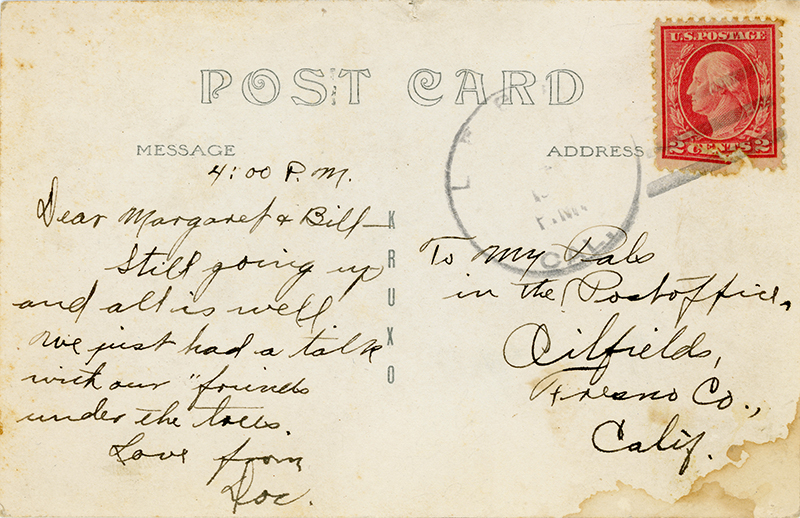 POST CARD
U.S. POSTAGE
2 CENTS 2
MESSAGE
ADDRESS
CALIF.
KRUXO
4:00 P.M.
Dear Margaret & Bill—
Still going up
and all is well
We just had a talk
with our "friends
under the trees.
Love from
Doc.
To My Pals
in the Postoffice,
Oilfields,
Fresno Co.,
Calif.